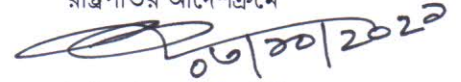 রাষ্ট্রপতির আদেশক্রমে
০৬/১০/২০২০